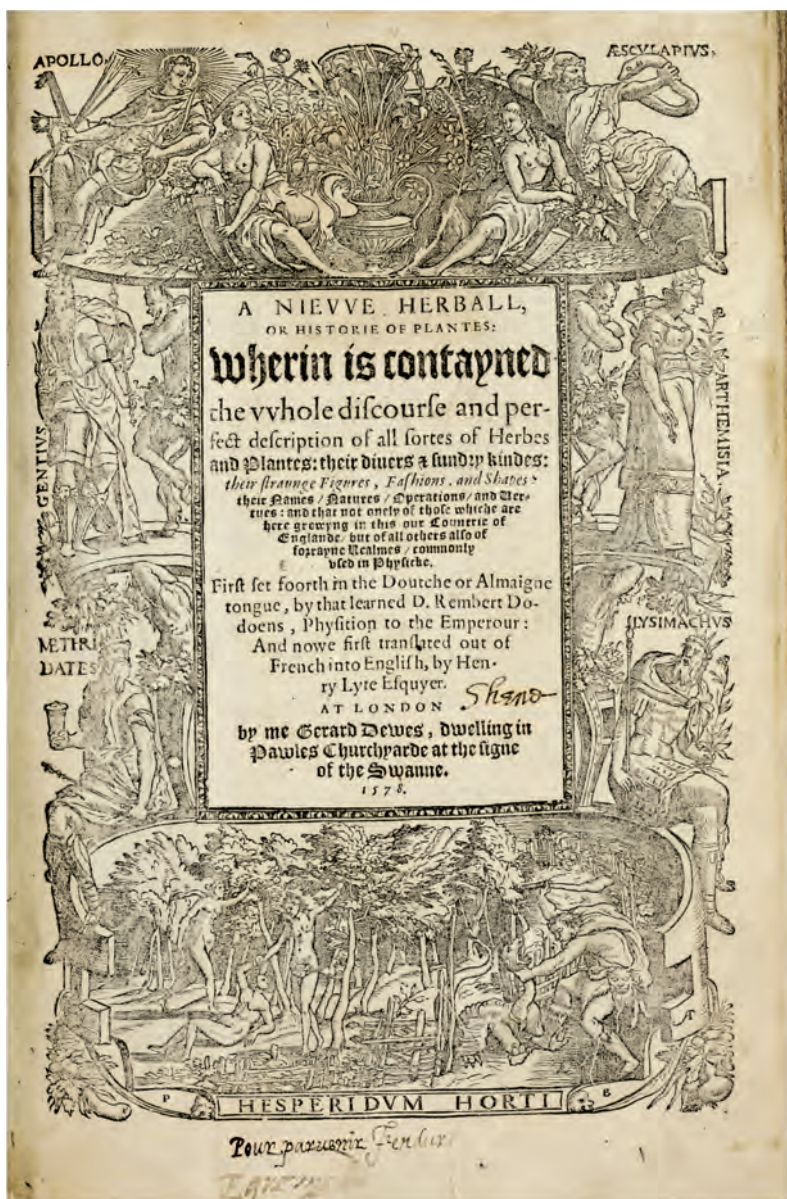 APOLLO,
ÆSCVLAPIVS,
A NIEVVE HERBALL,
OR HISTORIE OF PLANTES:
wherin is contayned
the vvhole diſcourſe and per-
fect deſcription of all ſortes of Herbes
and Plantes: their diuers & ſundry kindes:
their ſtraunge Figures, Faſhions, and Shapes:
their Names / Natures / Operations / and Ver-
tues: and that not onely of thoſe whiche are
here growyng in this our Countrie of
Englande / but of all others alſo of
forrayne Realmes / commonly
vſed in Phyſicke.
Firſt ſet foorth in the Doutche or Almaigne
tongue, by that learned D. Rembert Do-
doens, Phyſition to the Emperour:
And nowe firſt tranſlated out of
French into Engliſh, by Hen-
ry Lyte Eſquyer.
AT LONDON
by me Gerard Dewes, dwelling in
Pawles Churchyarde at the ſigne
of the Swanne.
1578.
GENTIVS
ARTHEMISIA
METHRI
DATES
LYSIMACHVS
P
B
HESPERIDVM HORTI
Pour paruenir